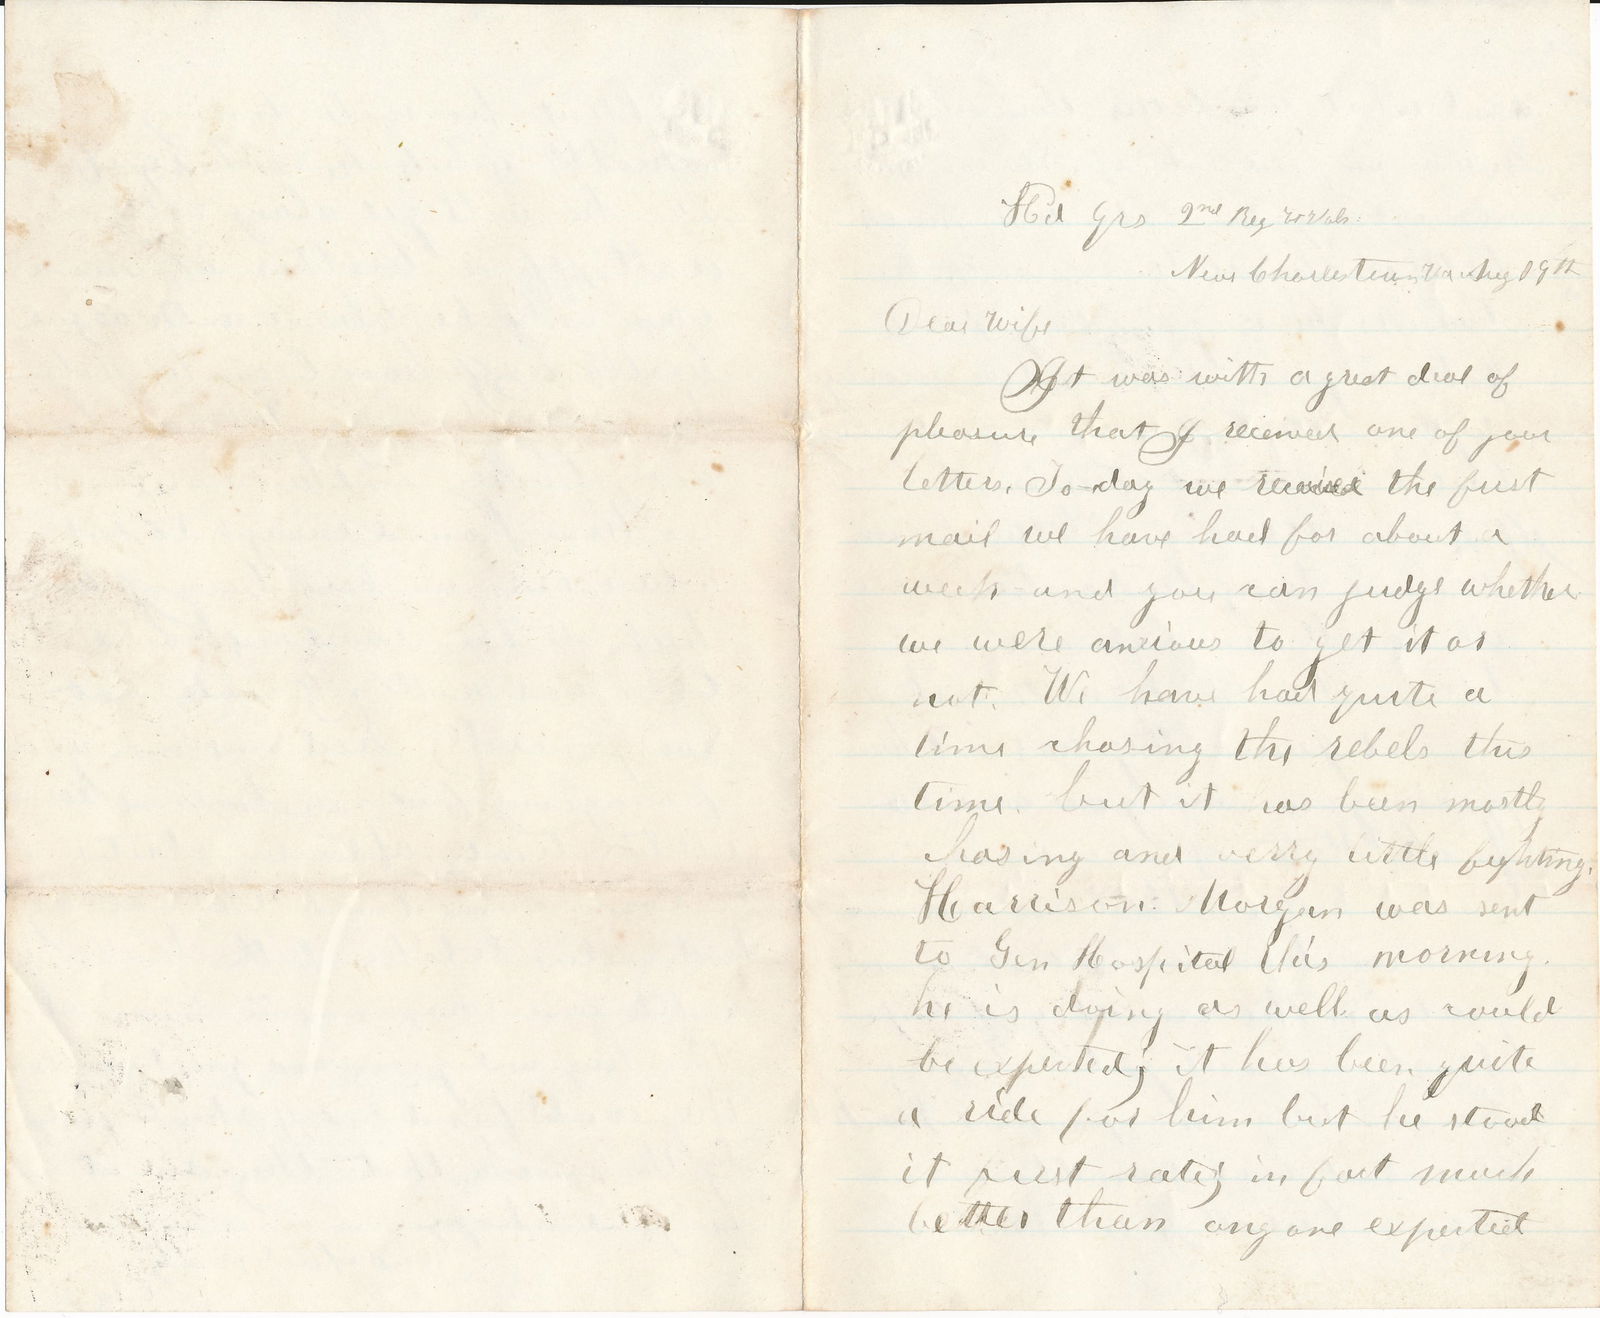 Hd Qrs 2nd Reg Vt Vols.
Near Charlestown Va Aug 19th
Dear Wife
It was with a great deal of
pleasure that I received one of your
letters. To-day we received the first
mail we have had for about a
week and you can judge whether
we were anxious to get it or
not. We have had quite a
time chasing the rebels this
time. but it has been mostly
chasing and verry little fighting.
Harrison Morgan was sent
to Gen Hospital this morning.
he is doing as well as could
be expected; it has been quite
a ride for him but he stood
it first rate; in fact much
better than any one expected